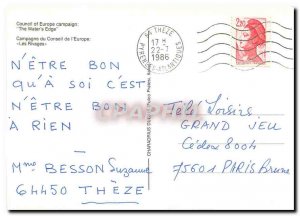 Council of Europe campaign:
"The Water's Edge"
Campagne du Conseil de l'Europe:
«Les Rivages»
64 THÈZE
17 H
22-7
1986
PYRENEES-ATLANTIQUES
2,20
N'ÊTRE BON
QU'À SOI C'EST
N'ÊTRE BON
À RIEN
Mme BESSON Suzanne
64450 THÈZE
Télé Loisirs
GRAND JEU
Cédex 8004
75601 PARIS Brune